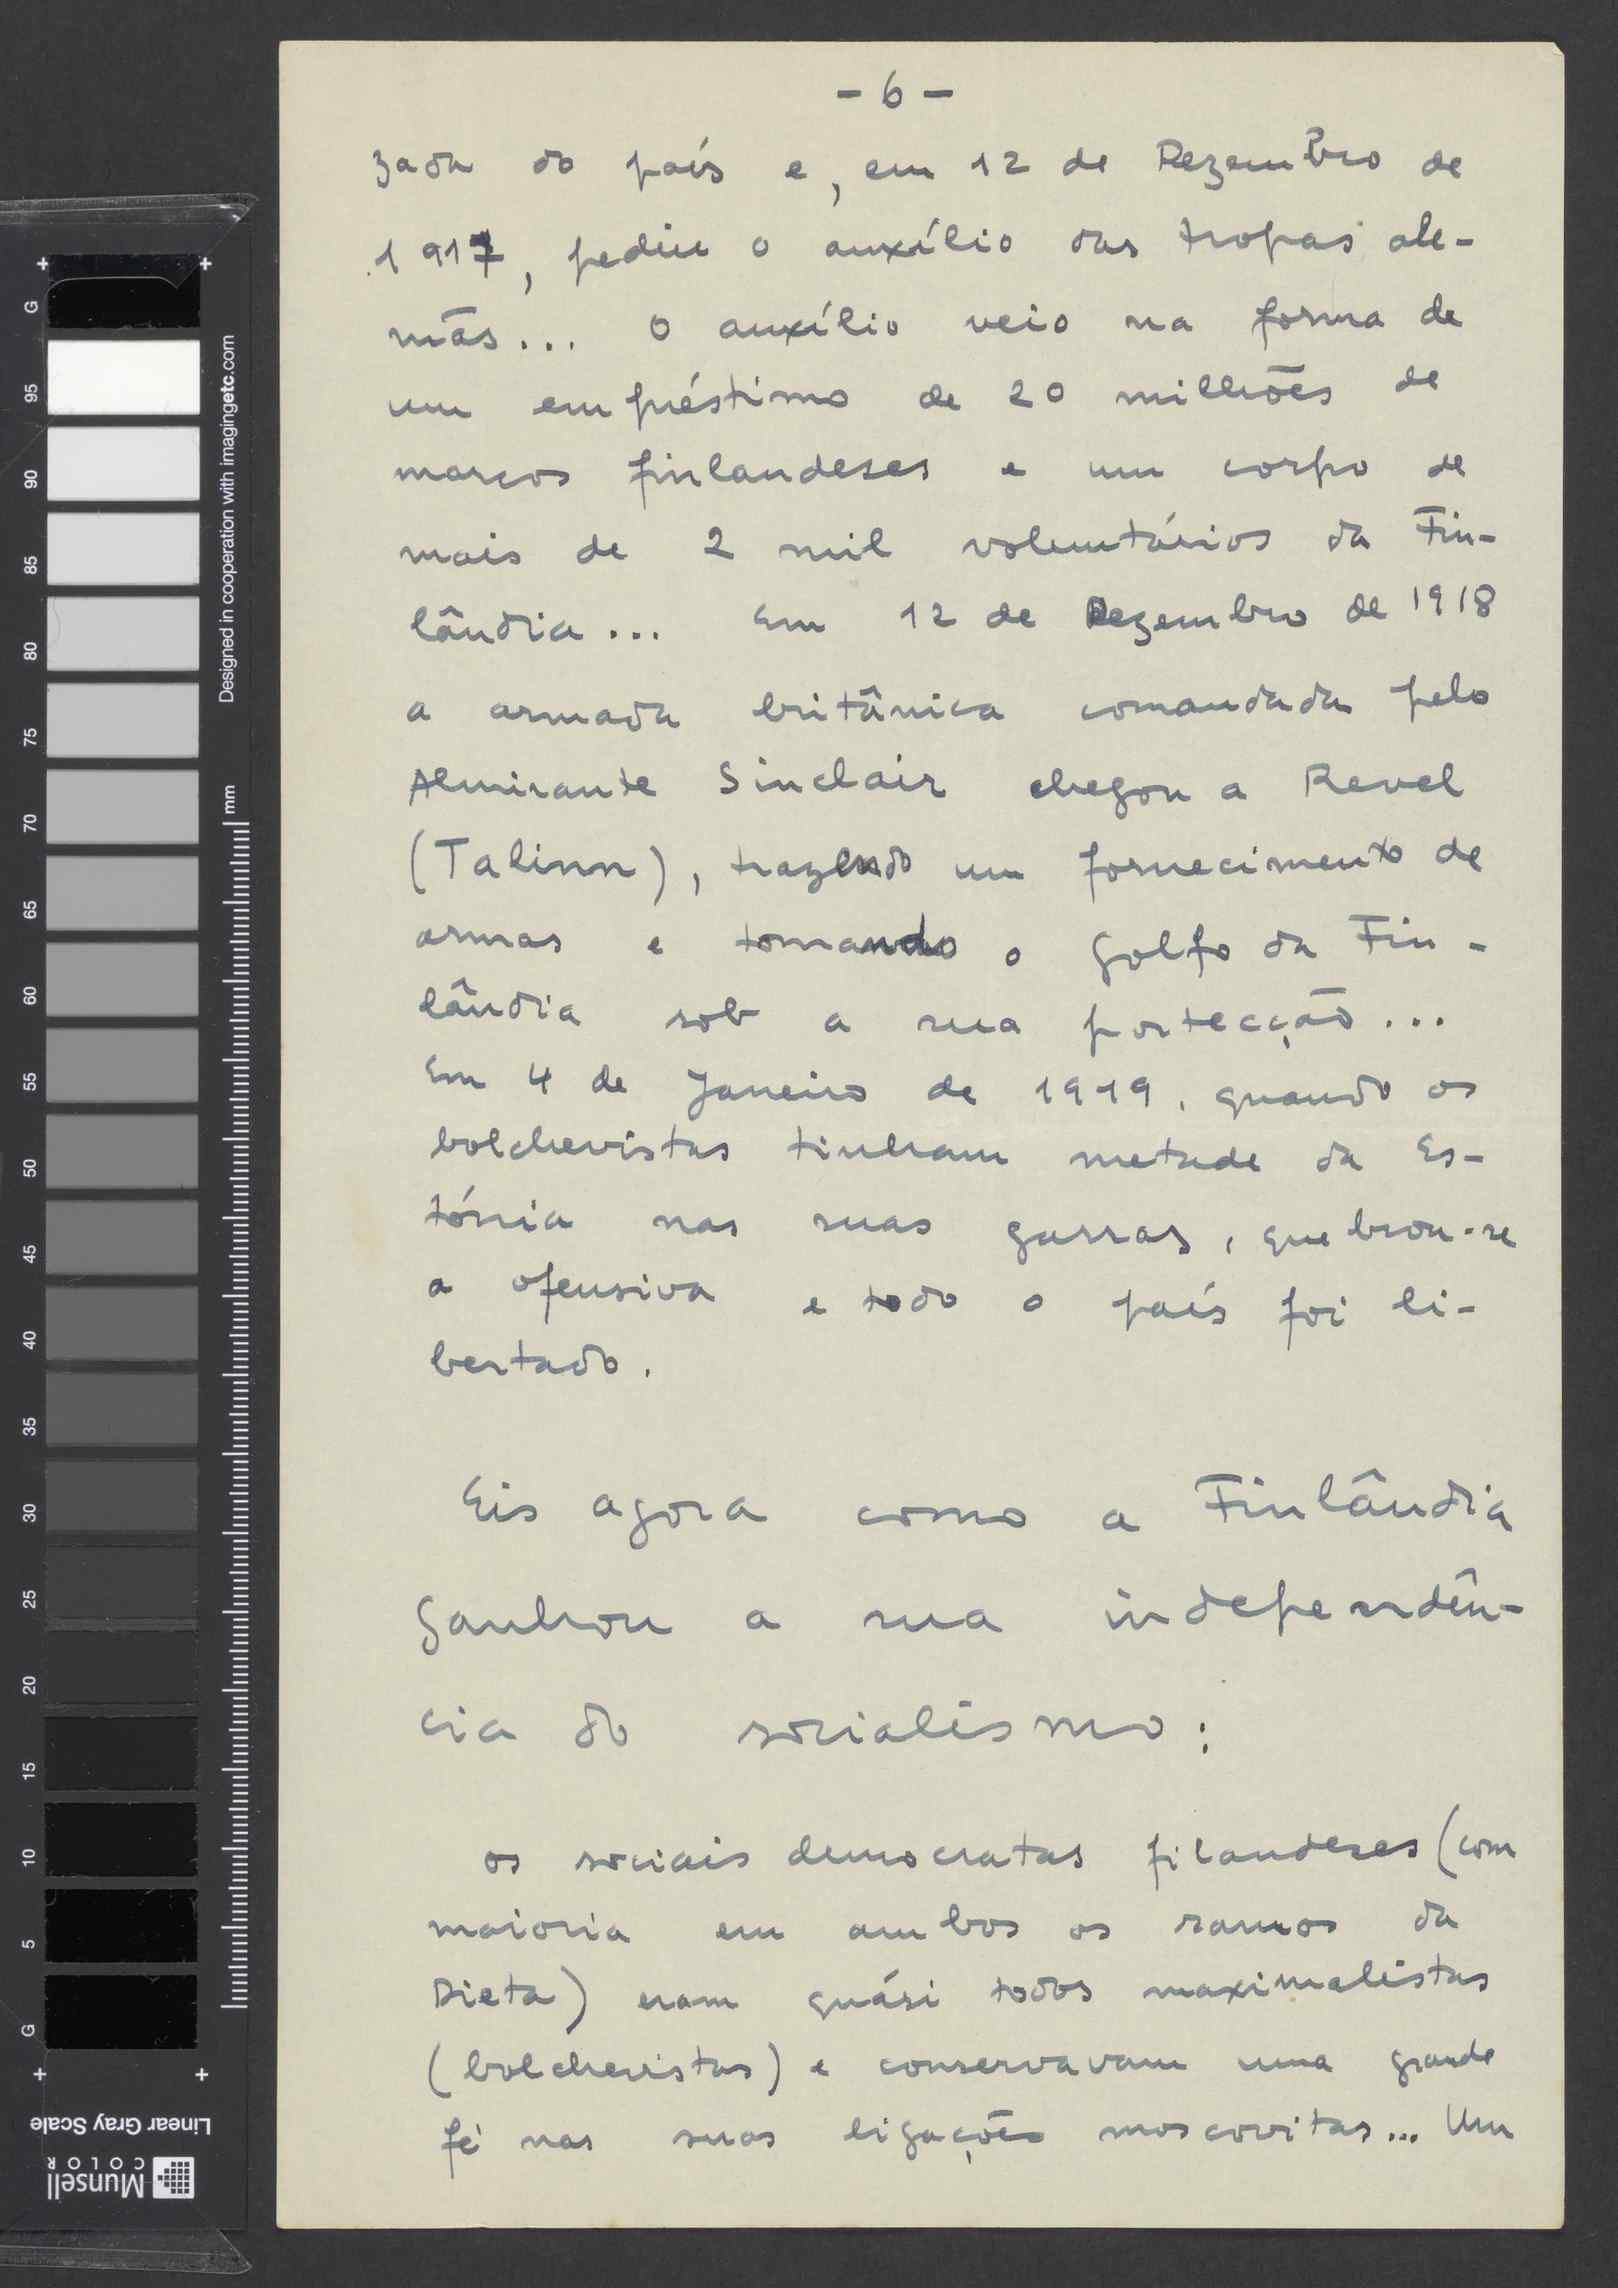 - 6 -
zada do país e, em 12 de Dezembro de
1917, pediu o auxílio das tropas ale-
mãs... O auxílio veio na forma de
um empréstimo de 20 milhões de
marcos finlandeses e um corpo de
mais de 2 mil voluntários da Fin-
lândia... Em 12 de Dezembro de 1918
a armada britânica comandada pelo
Almirante Sinclair chegou a Revel
(Talinn), trazendo um fornecimento de
armas e tomando o golfo da Fin-
lândia sob a sua portecção...
Em 4 de Janeiro de 1919, quando os
bolchevistas tinham metade da Es-
tónia nas suas garras, quebrou-se
a ofensiva e todo o país foi li-
bertado.
Eis agora como a Finlândia
ganhou a sua independên-
cia do socialismo:
os sociais democratas filandeses (com
maioria em ambos os ramos da
Dieta) eram quási todos maximalistas
(bolchevistas) e conservavam uma grande
fé nas suas ligações moscovitas... Um
Designed in cooperation with imagingetc.com
mm
G
95
90
85
80
75
70
65
60
55
50
45
40
35
30
25
20
15
10
5
G
Linear Gray Scale
Munsell
COLOR